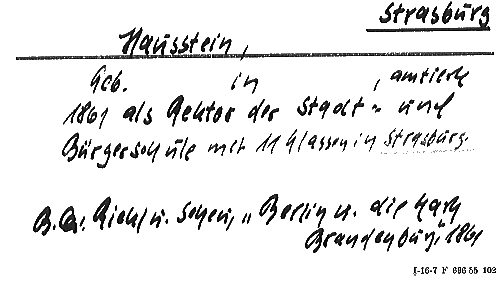 Strasburg
Hausstein,
Geb. in , amtierte
1861 als Rektor der Stadt- und
Bürgerschule mit 11 Klassen in Strasburg.
B. Qu. Riehl u. Scheu, "Berlin u. die Mark
Brandenburg", 1861
I-16-7 F 666 55 102